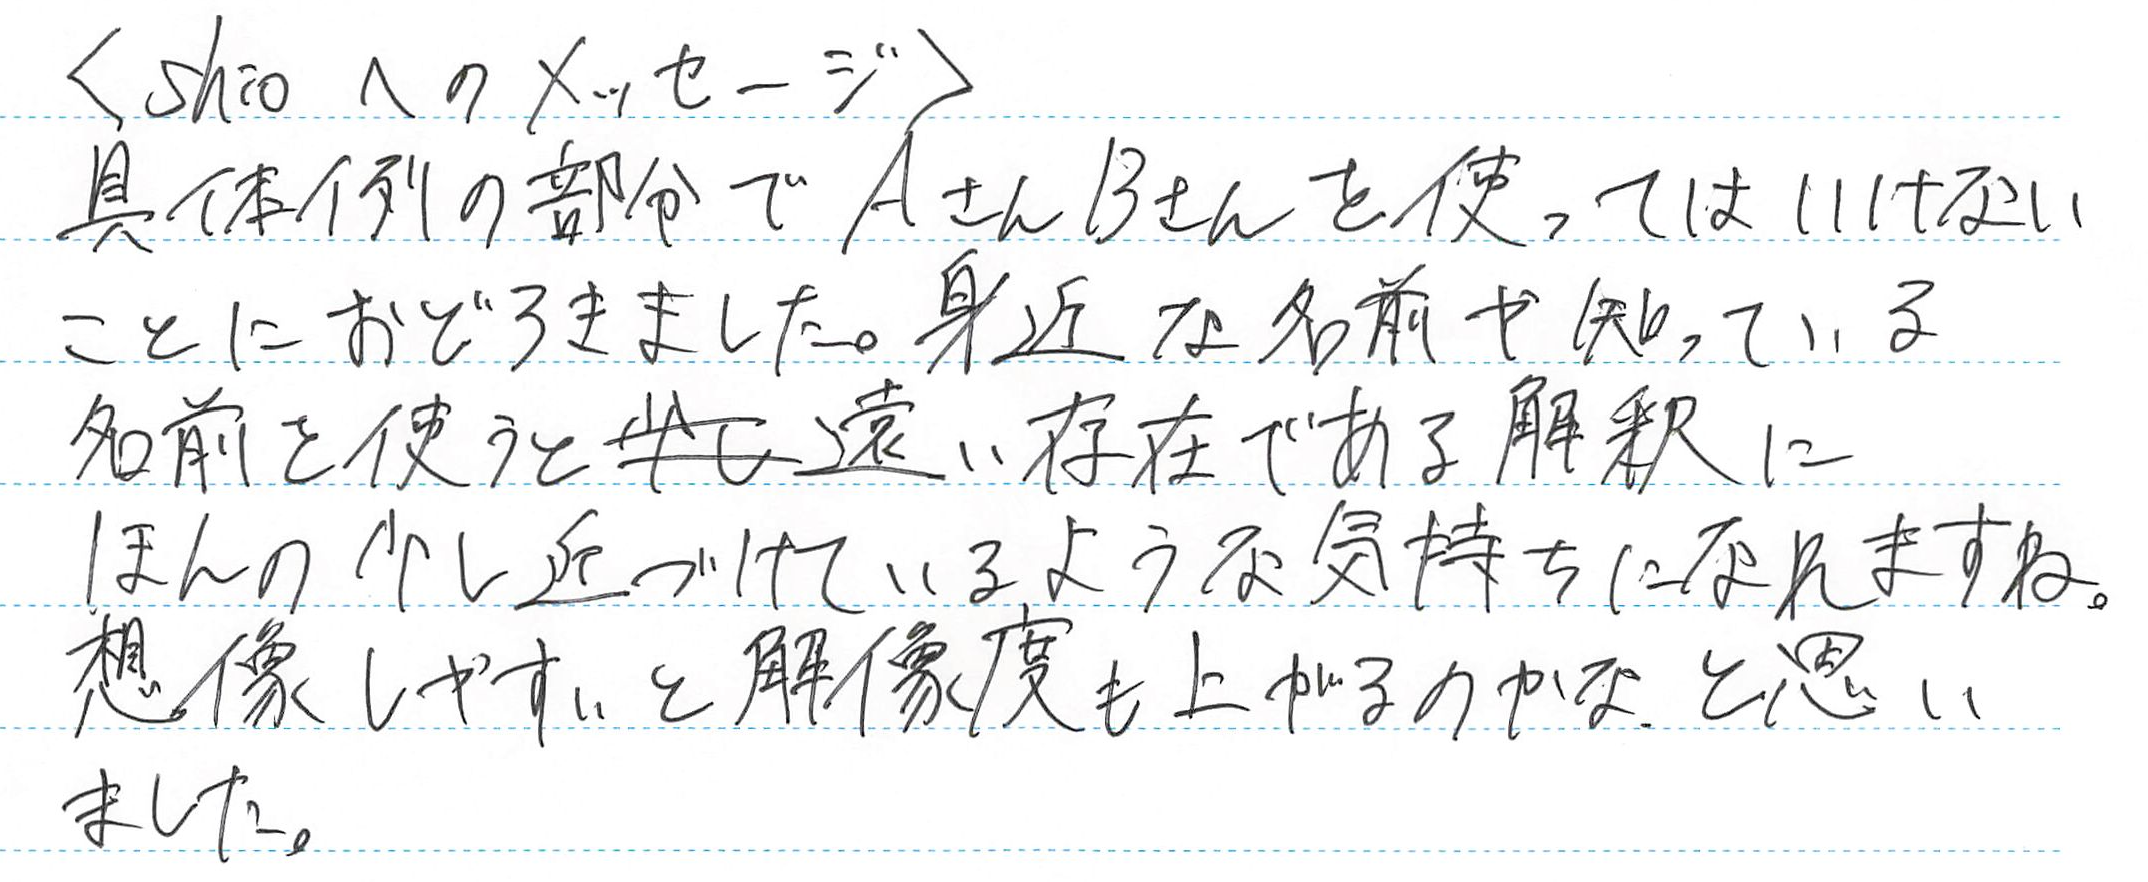 〈shioへのメッセージ〉
具体例の部分でAさんBさんを使ってはいけない
ことにおどろきました。身近な名前や知っている
名前を使うと遠い存在である解釈に
ほんの少し近づけているような気持ちになれますね。
想像しやすいと解像度も上がるのかな、と思い
ました。